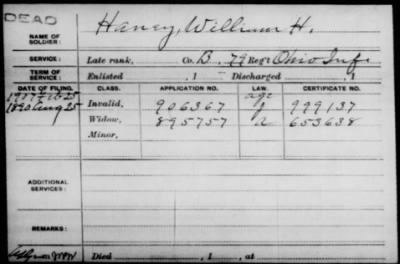 DEAD
NAME OF SOLDIER: Haney, William H.
SERVICE: Late rank, Co. B, 79 Reg't Ohio Inf.
TERM OF SERVICE: Enlisted , 1 Discharged , 1
DATE OF FILING. CLASS. APPLICATION NO. LAW. CERTIFICATE NO.
age
Invalid, 906367 999137
1890 Aug 25 Widow, 895757 653638
Minor,
ADDITIONAL SERVICES:
REMARKS:
Died , 1 , at